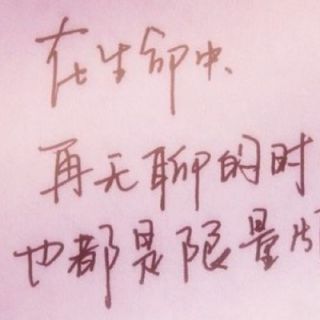 在生命中、
再无聊的时
也都是限量版